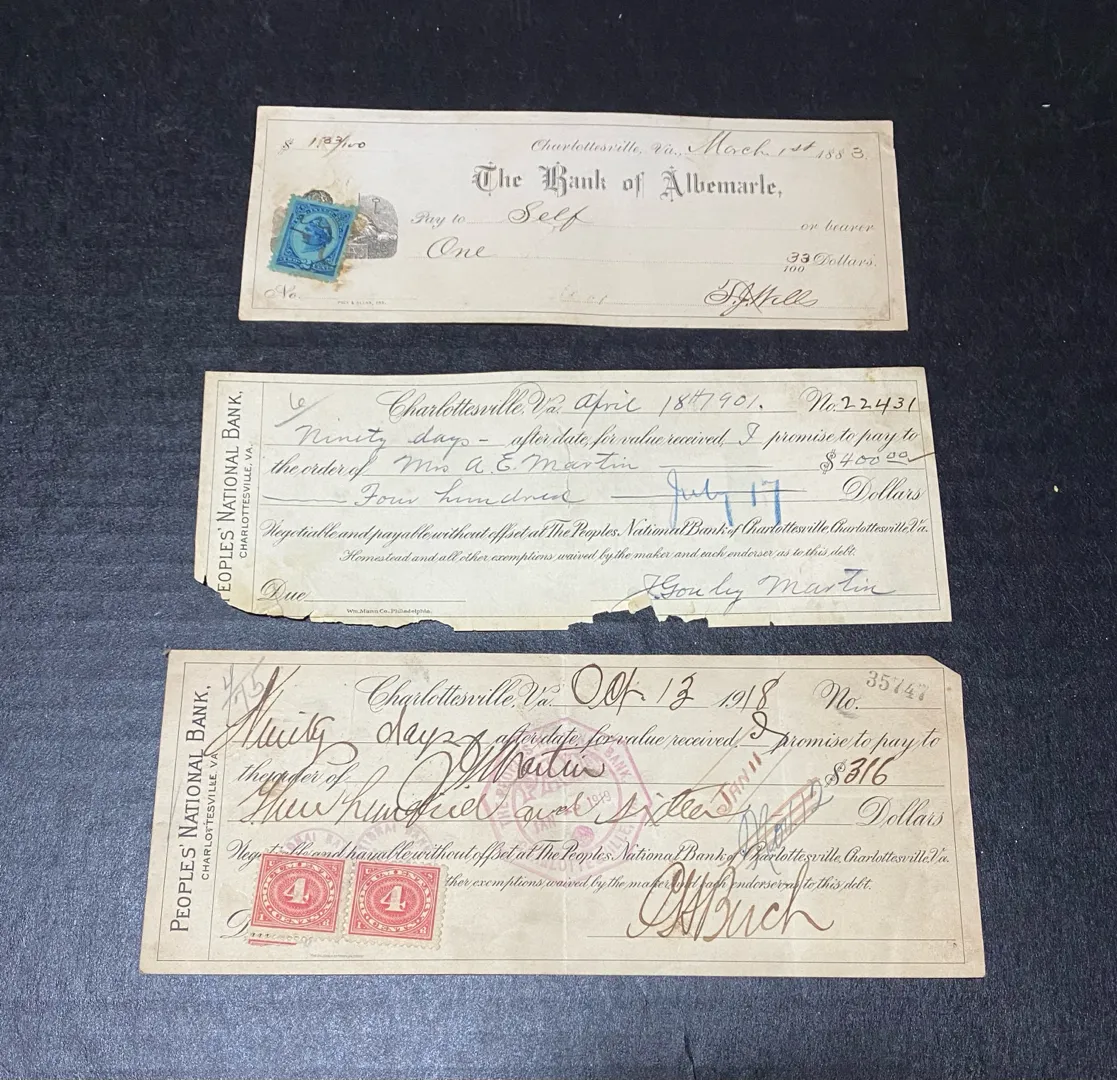 $ 1 33/100
Charlottesville, Va., March 1st 1883.
The Bank of Albemarle,
Pay to Self or bearer
One 33/100 Dollars.
2
No.
T.J. Wills
PEOPLES' NATIONAL BANK,
CHARLOTTESVILLE, VA.
6/
Charlottesville, Va. April 18th 1901. No. 22431
Ninety days – after date, for value received I promise to pay to
the order of Mrs A. E. Martin $400 00
Four hundred Dollars
July 17
Negotiable and payable without offset at The Peoples National Bank of Charlottesville, Charlottesville, Va.
Homestead and all other exemptions waived by the maker and each endorser as to this debt.
Due
Martin
Wm. Mann Co. Philadelphia.
PEOPLES' NATIONAL BANK,
CHARLOTTESVILLE, VA.
4/75
Charlottesville, Va. Oct 13 1918 No. 35747
Ninety days after date, for value received I promise to pay to
the order of Martin $316
Three hundred and sixteen Dollars
JAN 11
Negotiable and payable without offset at The Peoples National Bank of Charlottesville, Charlottesville, Va.
ther exemptions waived by the maker and each endorser as to this debt.
DOCUMENTARY 4 CENTS
DOCUMENTARY 4 CENTS
D
Burch